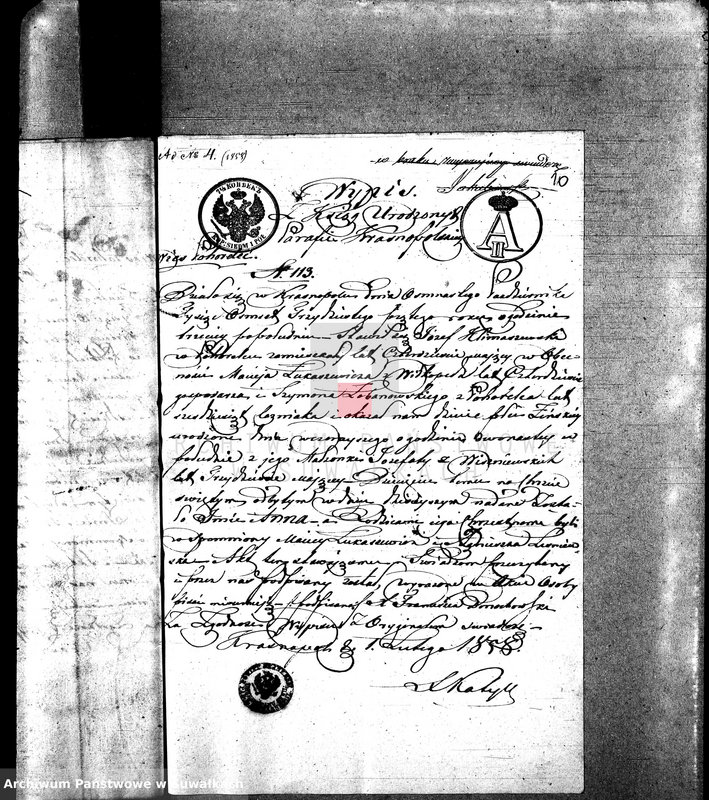 Ad № 4. (1858)
w braku
10
7½ KOPIEK
Wypis
z Ksiąg Urodzonych
Parafii Krasnopolskiej
A II
Wieś Pohorelec
№ 113.
Działo się w Krasnopolu dnia Osmnastego Października
Tysiąc Osmset Trzydziestego roku o godzinie
trzeciej popołudniu Stawił się Józef Klimaszewski
w zamieszkały lat Czterdzieści mający w Obec-
ności Macieja Łukaszewicza z lat Czterdzieści
gospodarza i Szymona Łobanowskiego z lat
sześćdziesiąt i okazał nam dziecię płci Żeńskiej
urodzone dnia wczorajszego o godzinie dwunastej w
południe z jego Małżonki Józefaty z Wiśniewskich
lat Trzydzieści mającej Dziecięciu temu na Chrzcie
świętym odbytym w dniu dzisiejszym nadane zosta-
ło Imie ANNA a Rodzicami jego Chrzestnemi byli
wspomniony Maciej Łukaszewicz i
Akt ten stawającemu i Świadkom przeczytany
i przez nas podpisany został wyrażone w Akcie Osoby
pisać nieumieją podpisano X Franciszek
Za Zgodność Wypisu z Oryginałem świadczę
Krasnopol d. 1. Lutego 1858
Archiwum Państwowe w Suwałkach